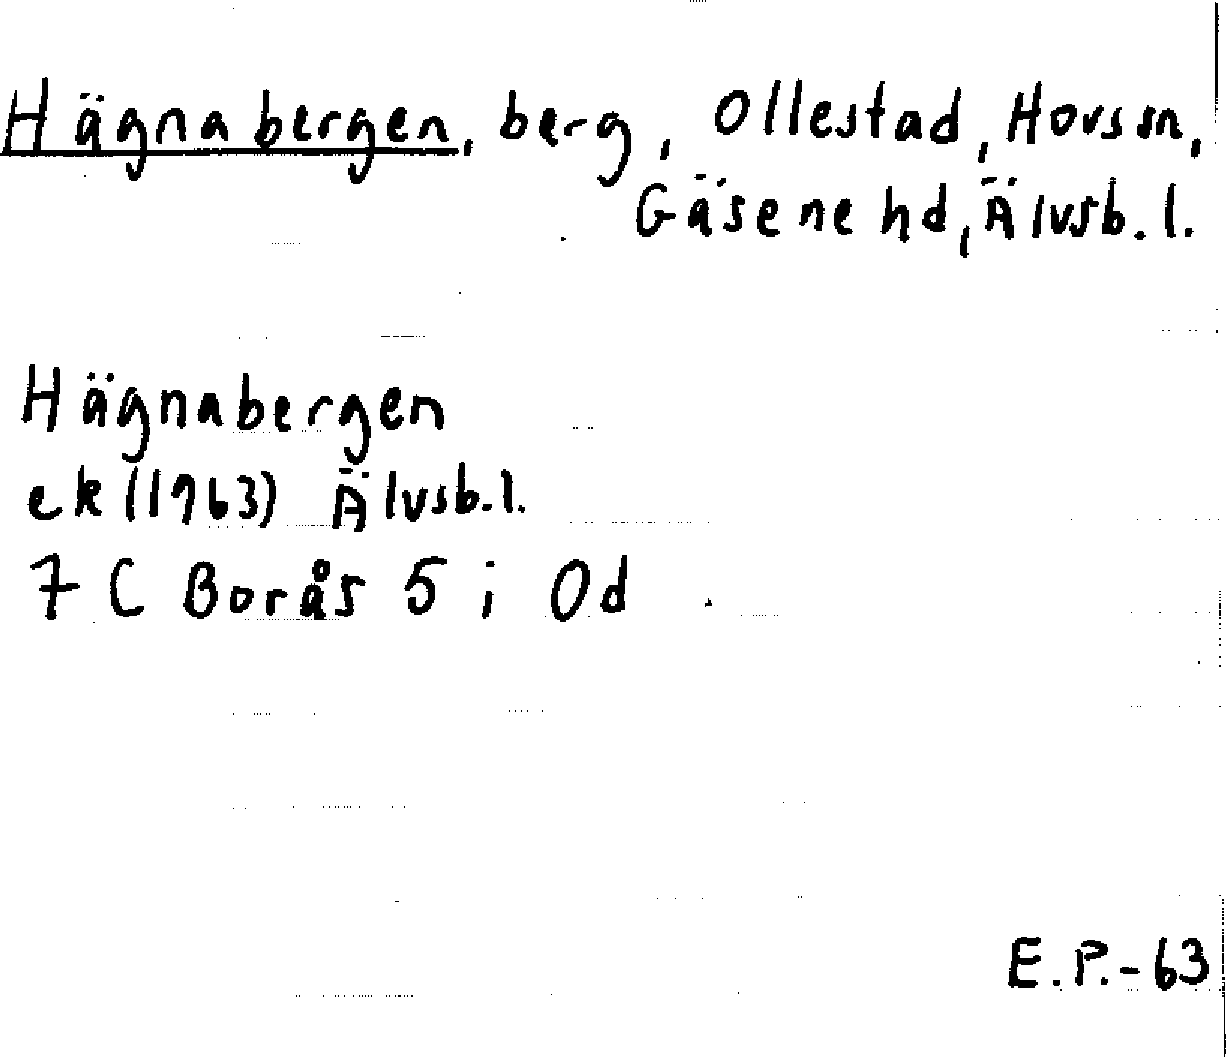 Hägnabergen, berg, Ollestad, Hovs sn,
Gäsene hd, Älvsb. l.
Hägnabergen
ek (1963) Älvsb. l.
7 C Borås 5 i Od
E. P. - 63